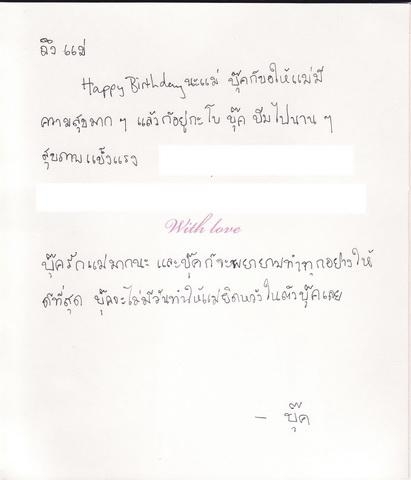 ถึง แม่
Happy Birthday นะแม่ บุ๊คก็ขอให้แม่มี
ความสุขมาก ๆ แล้วก็อยู่กะโบ บุ๊ค บีมไปนาน ๆ
สุขภาพแข็งแรง
With love
บุ๊ครักแม่มากนะ และบุ๊คก็จะพยายามทำทุกอย่างให้
ดีที่สุด บุ๊คจะไม่มีวันทำให้แม่ผิดหวังในตัวบุ๊คเลย
- บุ๊ค